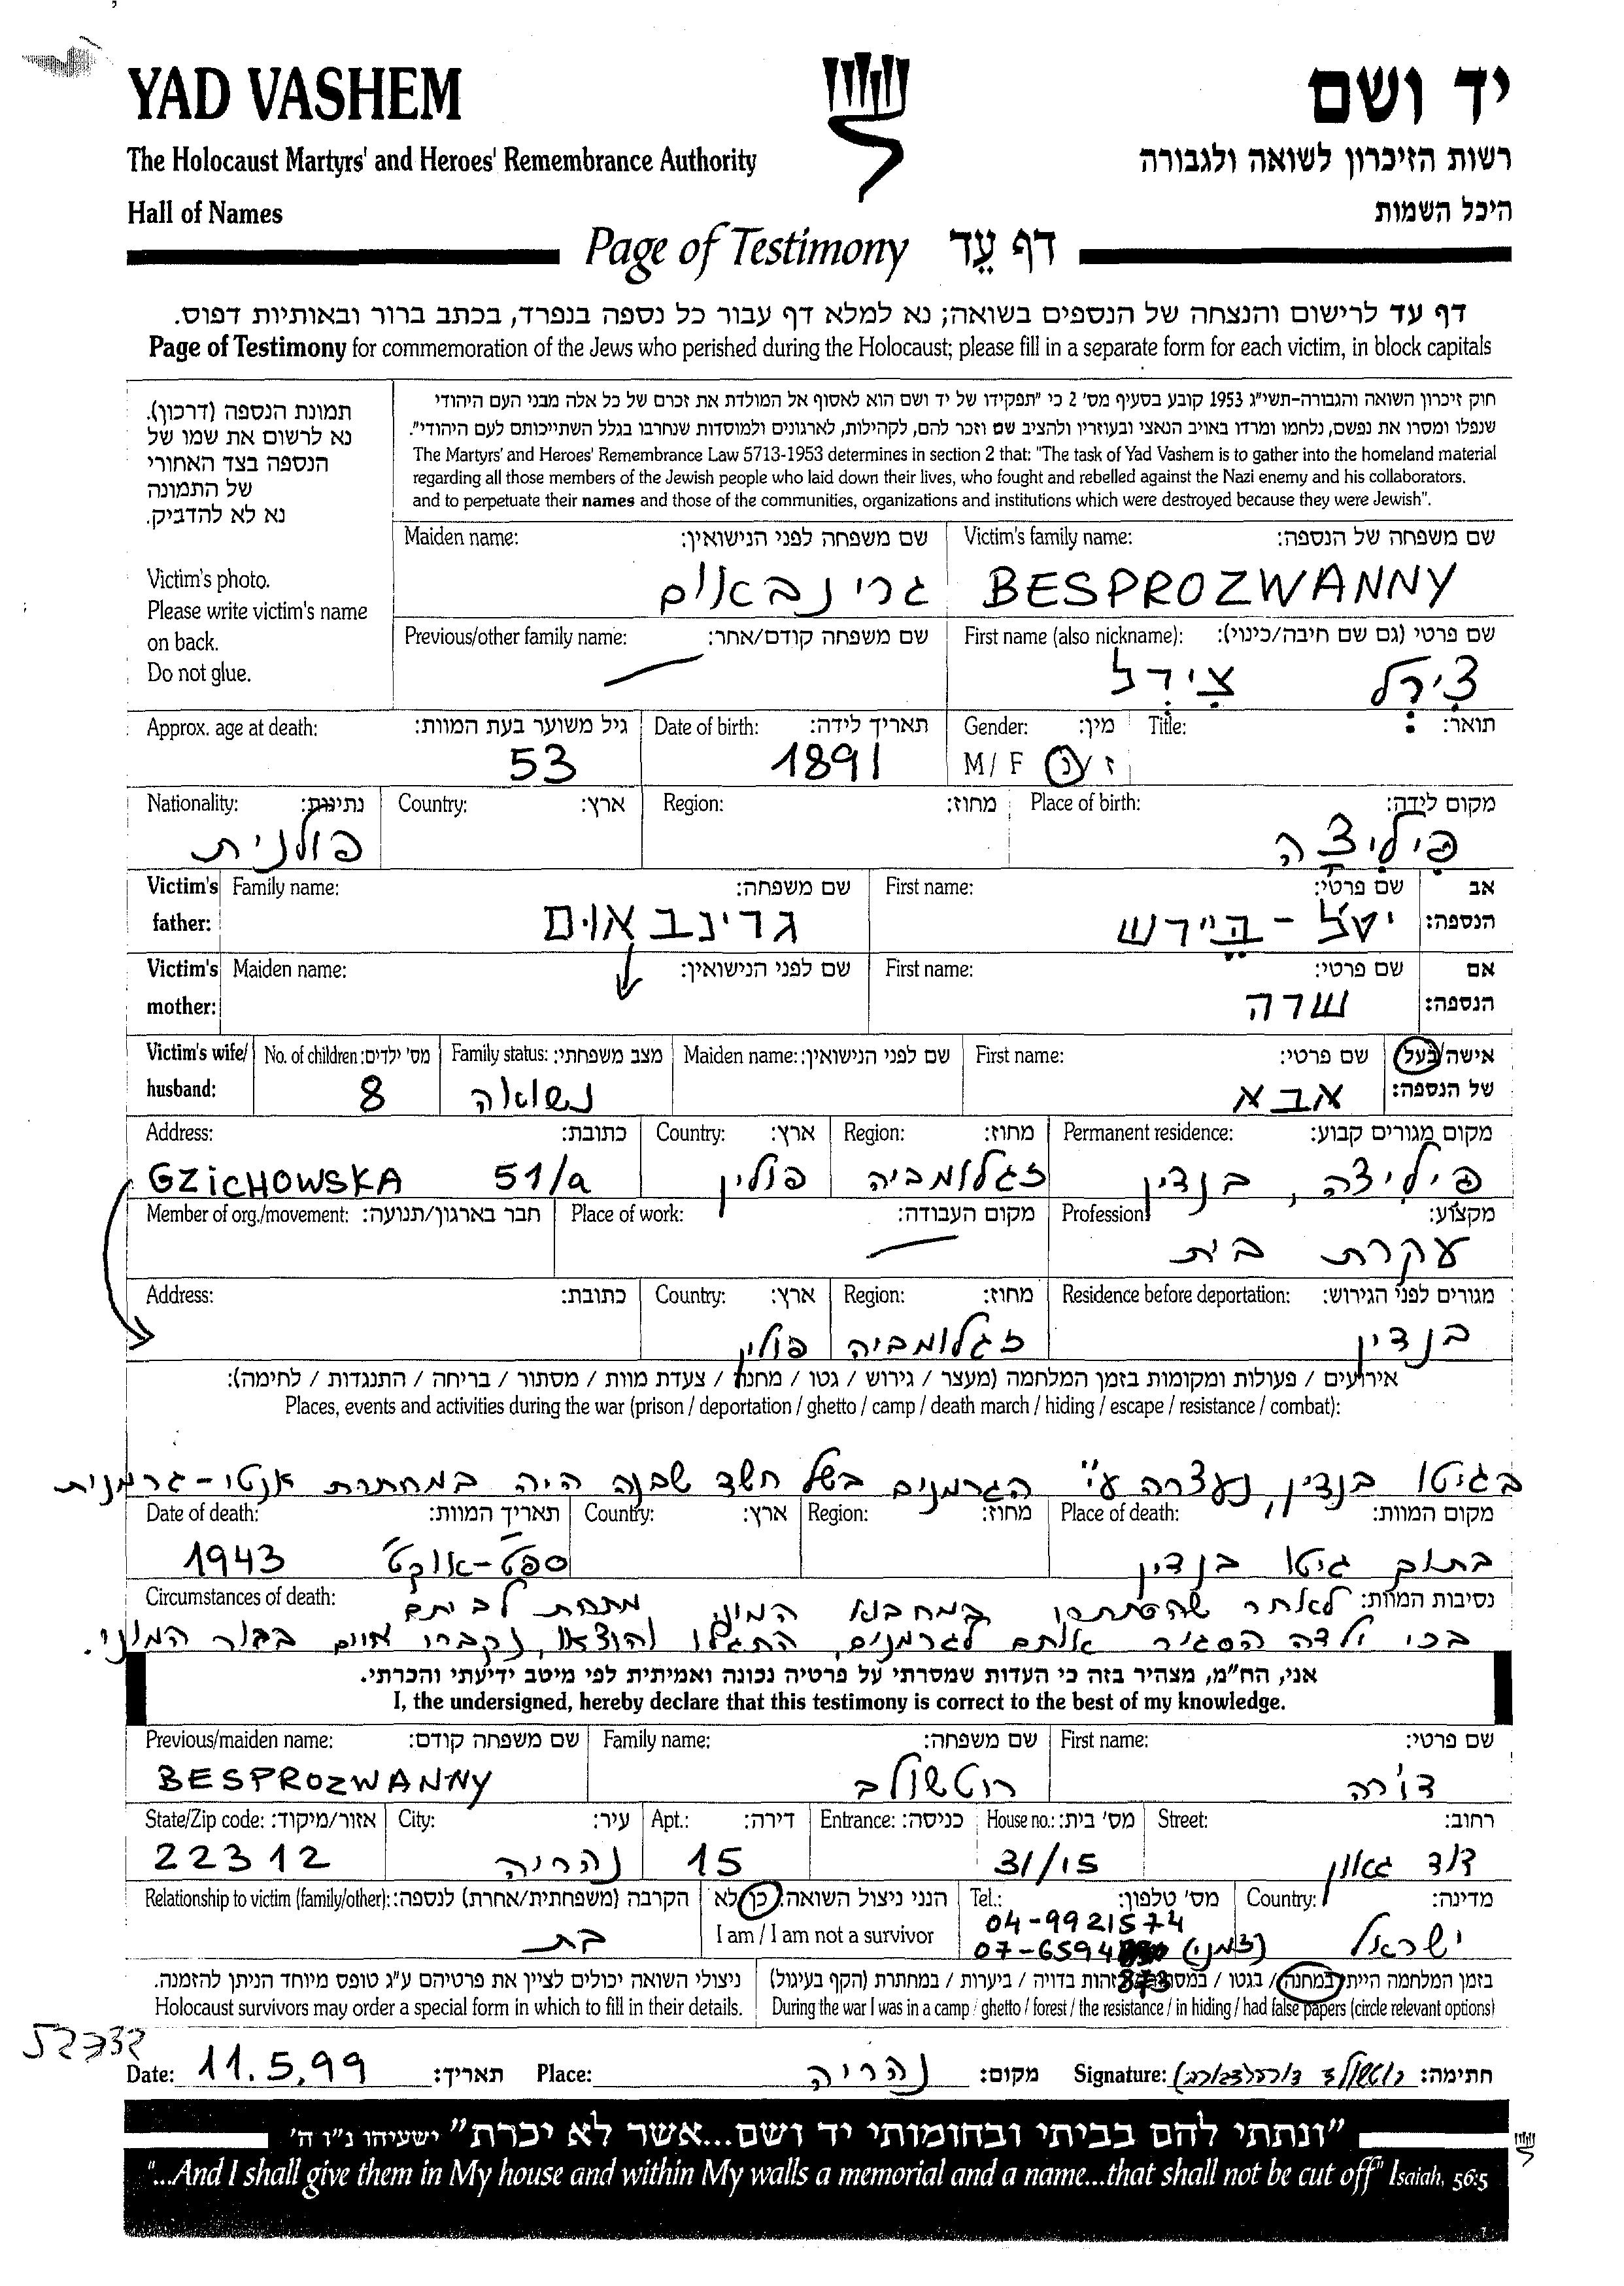 YAD VASHEM
יד ושם
The Holocaust Martyrs' and Heroes' Remembrance Authority
רשות הזיכרון לשואה ולגבורה
Hall of Names
היכל השמות
Page of Testimony דף עֵד
דף עד לרישום והנצחה של הנספים בשואה; נא למלא דף עבור כל נספה בנפרד, בכתב ברור ובאותיות דפוס.
Page of Testimony for commemoration of the Jews who perished during the Holocaust; please fill in a separate form for each victim, in block capitals
תמונת הנספה (דרכון).
נא לרשום את שמו של
הנספה בצד האחורי
של התמונה
נא לא להדביק.
Victim's photo.
Please write victim's name
on back.
Do not glue.
חוק זיכרון השואה והגבורה-תשי"ג 1953 קובע בסעיף מס' 2 כי "תפקידו של יד ושם הוא לאסוף אל המולדת את זכרם של כל אלה מבני העם היהודי
שנפלו ומסרו את נפשם, נלחמו ומרדו באויב הנאצי ובעוזריו ולהציב שם וזכר להם, לקהילות, לארגונים ולמוסדות שנחרבו בגלל השתייכותם לעם היהודי".
The Martyrs' and Heroes' Remembrance Law 5713-1953 determines in section 2 that: "The task of Yad Vashem is to gather into the homeland material
regarding all those members of the Jewish people who laid down their lives, who fought and rebelled against the Nazi enemy and his collaborators.
and to perpetuate their names and those of the communities, organizations and institutions which were destroyed because they were Jewish".
Victim's family name: שם משפחה של הנספה: Maiden name: שם משפחה לפני הנישואין:
BESPROZWANNY גרינבאום
First name (also nickname): שם פרטי (גם שם חיבה/כינוי): Previous/other family name: שם משפחה קודם/אחר:
צירל צידל
תואר: Title: מין: Gender: תאריך לידה: Date of birth: גיל משוער בעת המוות: Approx. age at death:
M / F ז / נ 1891 53
מקום לידה: Place of birth: מחוז: Region: ארץ: Country: נתינות: Nationality:
פיליצה פולנית
אב שם פרטי: First name: שם משפחה: Family name: Victim's
הנספה: גרינבאום father:
אם שם פרטי: First name: שם לפני הנישואין: Maiden name: Victim's
הנספה: שרה mother:
אישה/בעל שם פרטי: First name: שם לפני הנישואין: Maiden name: מצב משפחתי: Family status: מס' ילדים: No. of children: Victim's wife/
של הנספה: אבא נשואה 8 husband:
מקום מגורים קבוע: Permanent residence: מחוז: Region: ארץ: Country: כתובת: Address:
פיליצה, בנדין זגלומביה פולין GZICHOWSKA 51/a
מקצוע: Profession: מקום העבודה: Place of work: חבר בארגון/תנועה: Member of org./movement:
עקרת בית
מגורים לפני הגירוש: Residence before deportation: מחוז: Region: ארץ: Country: כתובת: Address:
בנדין זגלומביה פולין
אירועים / פעולות ומקומות בזמן המלחמה (מעצר / גירוש / גטו / מחנה / צעדת מוות / מסתור / בריחה / התנגדות / לחימה):
Places, events and activities during the war (prison / deportation / ghetto / camp / death march / hiding / escape / resistance / combat):
בגיטו בנדין, נעצרה ע"י הגרמנים בשל חשד שבנה היה במחתרת אנטי-גרמנית
מקום המוות: Place of death: מחוז: Region: ארץ: Country: תאריך המוות: Date of death:
בתום גיטו בנדין ספט'-אוקט' 1943
נסיבות המוות: לאחר שהסתתרו במחבוא המוני מתחת לביתם, Circumstances of death:
בכי ילדה הסגיר אותם לגרמנים, התגלו והוצאו, נקברו חיים בבור המוני.
אני, הח"מ, מצהיר בזה כי העדות שמסרתי על פרטיה נכונה ואמיתית לפי מיטב ידיעתי והכרתי.
I, the undersigned, hereby declare that this testimony is correct to the best of my knowledge.
שם פרטי: First name: שם משפחה: Family name: שם משפחה קודם: Previous/maiden name:
דורה רוטשולד BESPROZWANNY
רחוב: Street: מס' בית: House no.: כניסה: Entrance: דירה: Apt.: עיר: City: אזור/מיקוד: State/Zip code:
דוד גאון 31/15 15 נהריה 22312
מדינה: Country: מס' טלפון: Tel.: הנני ניצול השואה: כן לא הקרבה (משפחתית/אחרת) לנספה: Relationship to victim (family/other):
ישראל 04-9921574 I am / I am not a survivor בת
07-6594 873 (זמני)
בזמן המלחמה הייתי במחנה / בגטו / זהות בדויה / ביערות / במחתרת (הקף בעיגול) ניצולי השואה יכולים לציין את פרטיהם ע"ג טופס מיוחד הניתן להזמנה.
During the war I was in a camp / ghetto / forest / the resistance / in hiding / had false papers (circle relevant options) Holocaust survivors may order a special form in which to fill in their details.
52732
Date: 11.5.99 תאריך: Place: נהריה מקום: Signature: חתימה:
"ונתתי להם בביתי ובחומותי יד ושם...אשר לא יכרת" ישעיהו נ"ו ה'
"...And I shall give them in My house and within My walls a memorial and a name...that shall not be cut off" Isaiah, 56:5